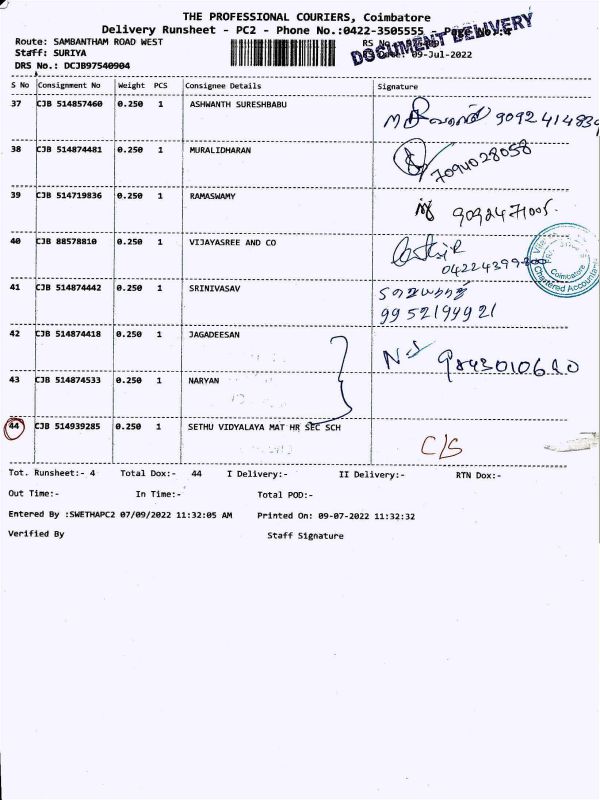 THE PROFESSIONAL COURIERS, Coimbatore
Delivery Runsheet - PC2 - Phone No.:0422-3505555 - Page No.:4
Route: SAMBANTHAM ROAD WEST
RS No
DOCUMENT DELIVERY
Staff: SURIYA
09-Jul-2022
DRS No.: DCJB97540904
S No Consignment No Weight PCS Consignee Details Signature
37 CJB 514857460 0.250 1 ASHWANTH SURESHBABU
9092414839
38 CJB 514874481 0.250 1 MURALIDHARAN
7094028058
39 CJB 514719836 0.250 1 RAMASWAMY
9092471005.
40 CJB 88578810 0.250 1 VIJAYASREE AND CO
Coimbatore
Chartered Accountant
41 CJB 514874442 0.250 1 SRINIVASAV
9952199921
42 CJB 514874418 0.250 1 JAGADEESAN
9843010680
43 CJB 514874533 0.250 1 NARYAN
44 CJB 514939285 0.250 1 SETHU VIDYALAYA MAT HR SEC SCH
C/S
Tot. Runsheet:- 4 Total Dox:- 44 I Delivery:- II Delivery:- RTN Dox:-
Out Time:- In Time:- Total POD:-
Entered By :SWETHAPC2 07/09/2022 11:32:05 AM Printed On: 09-07-2022 11:32:32
Verified By Staff Signature